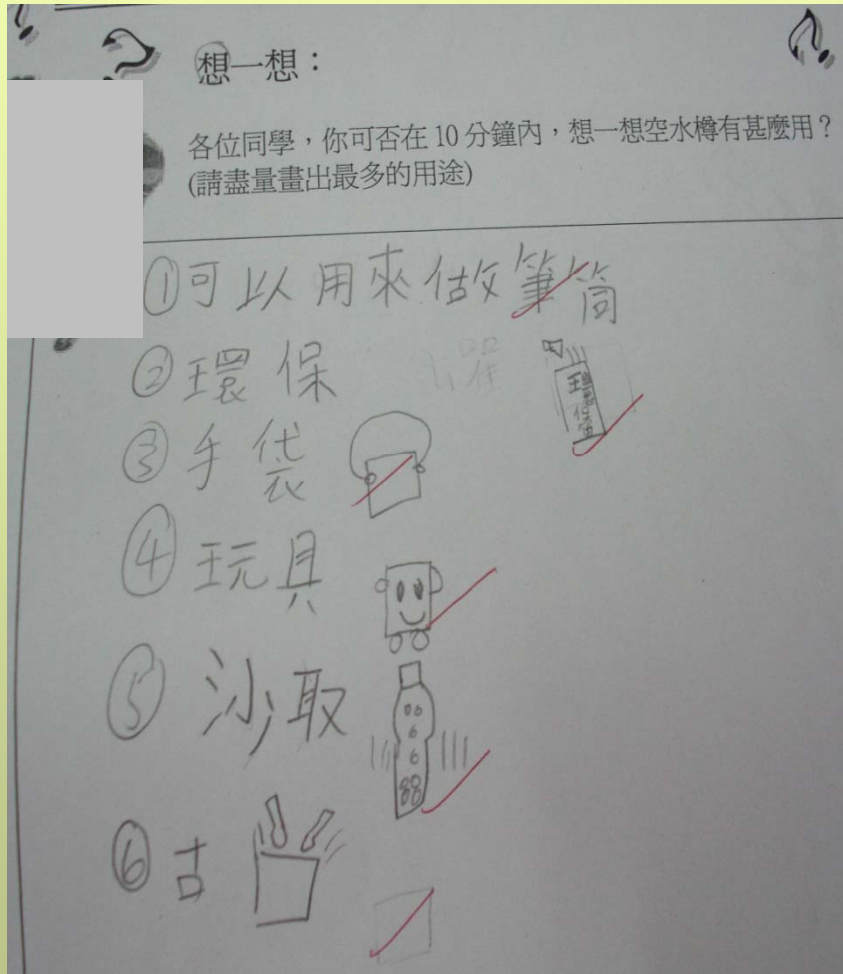 想一想：
各位同學，你可否在 10 分鐘內，想一想空水樽有甚麼用？
(請盡量畫出最多的用途)
①可以用來做筆筒
②環保
環保
③手袋
④玩具
⑤沙取
⑥古